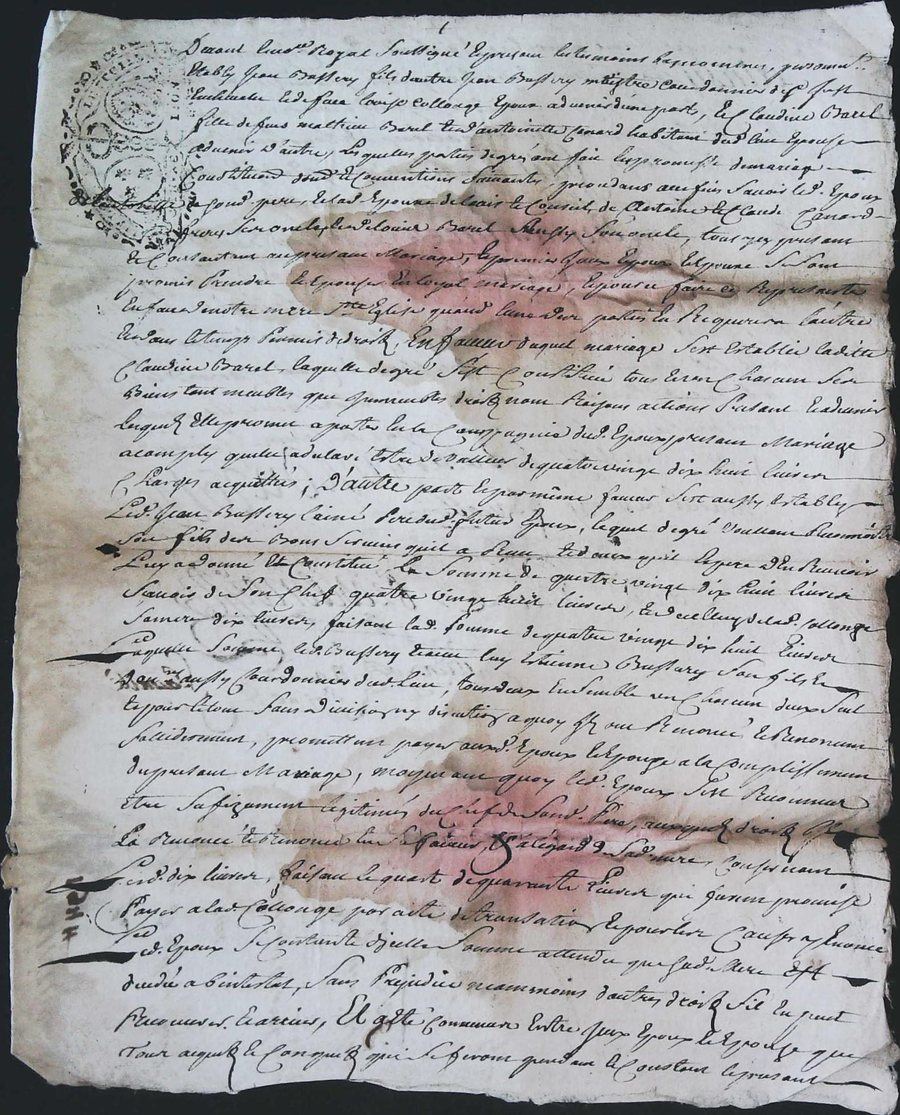 Devant le no.re Royal soussigné et presant les temoins bas nommés, personn.t
Estably Jean Bassery fils d'autre Jean Bassery m.tre cordonnier de St Just
Louise Collonge Epoux advenir d'une part, et Claudine Barel
fille de feus mathieu Barel et d'antoinette Canard habitant dud lieu Epouse
advenir D'autre, lesquelles parties de gré ont fait les promesses de mariage
Constitution et Conventions suivantes procedans aux fins savoir led. Epoux
de sond. pere, et lad. Epouse de l'avis et Conseil de Antoine et Claude Canard
freres ses oncles et de Barel aussy son oncle, tous icy presant
et Consantant au presant Mariage, et premier iceux Epoux et Epouse se sont
promis Prendre et Epouser En loyal mariage, et
En face de notre mere Ste Eglise quand l'une des parties En Requerera l'autre
et dans le temps Permis de droit, En faveur duquel mariage s'est Establie laditte
Claudine Barel, laquelle de gré s'est Constitué tous et un Chacun ses
Biens tant meubles que immeubles droits noms Raisons actions Presant et advenir
lesquels Elle promet aporter En la Compagnie dud. Epoux presant Mariage
acomply qu'elle a de Valleur de quatre vingt dix huit livres
Charges acquittées; D'autre part et par même faveur s'est aussy Estably
led. Jean Bassery l'ainé Pere dud. futur Epoux, lequel de gré Voullant
son fils des Bons services qu'il a Reçu et de ceux qu'il Espere d'En Recevoir
Luy a donné et Constitué la Somme de quatre vingt dix huit livres
Savoir de Son Chef quatre vingt huit livres, et de celluy de lad. Collonge
sa mere dix livres, faisant lad. somme de quatre vingt dix huit livres
laquelle somme led. Bassery et avec luy Etienne Bassery Son fils
aussy Cordonnier dud. lieu, tous deux Ensemble un Chacun d'eux seul
et pour le tout sans division ny discution a quoy ils ont Renoncé et Renoncent
sollidairement, promettent payer auxd. Epoux et Epouse a la Complissement
du presant Mariage, moyenant quoy led. Epoux s'est Reconnu
Etre sufizament légitimés du Chef de Sond. Pere, auxquels droits il
a Renoncé et Renonce En sa faveur, Et a l'égard de Sad. mere, Consernant
lesd. dix livres, faisant le quart de quarante Livres qui furent promise
Payer a lad. Collonge par acte de transaction et pour les Causes y Enoncé
led. Epoux se Contante d'icelle Somme attendu que sad. Mere Est
decedée abintestat, sans Prejudice neammoins d'autres droits s'il En peut
Recouvrer, Et a été Convenu Entre iceux Epoux et Epouse que
tous acquets et Conquets qui se feront pendant le Constant le presant